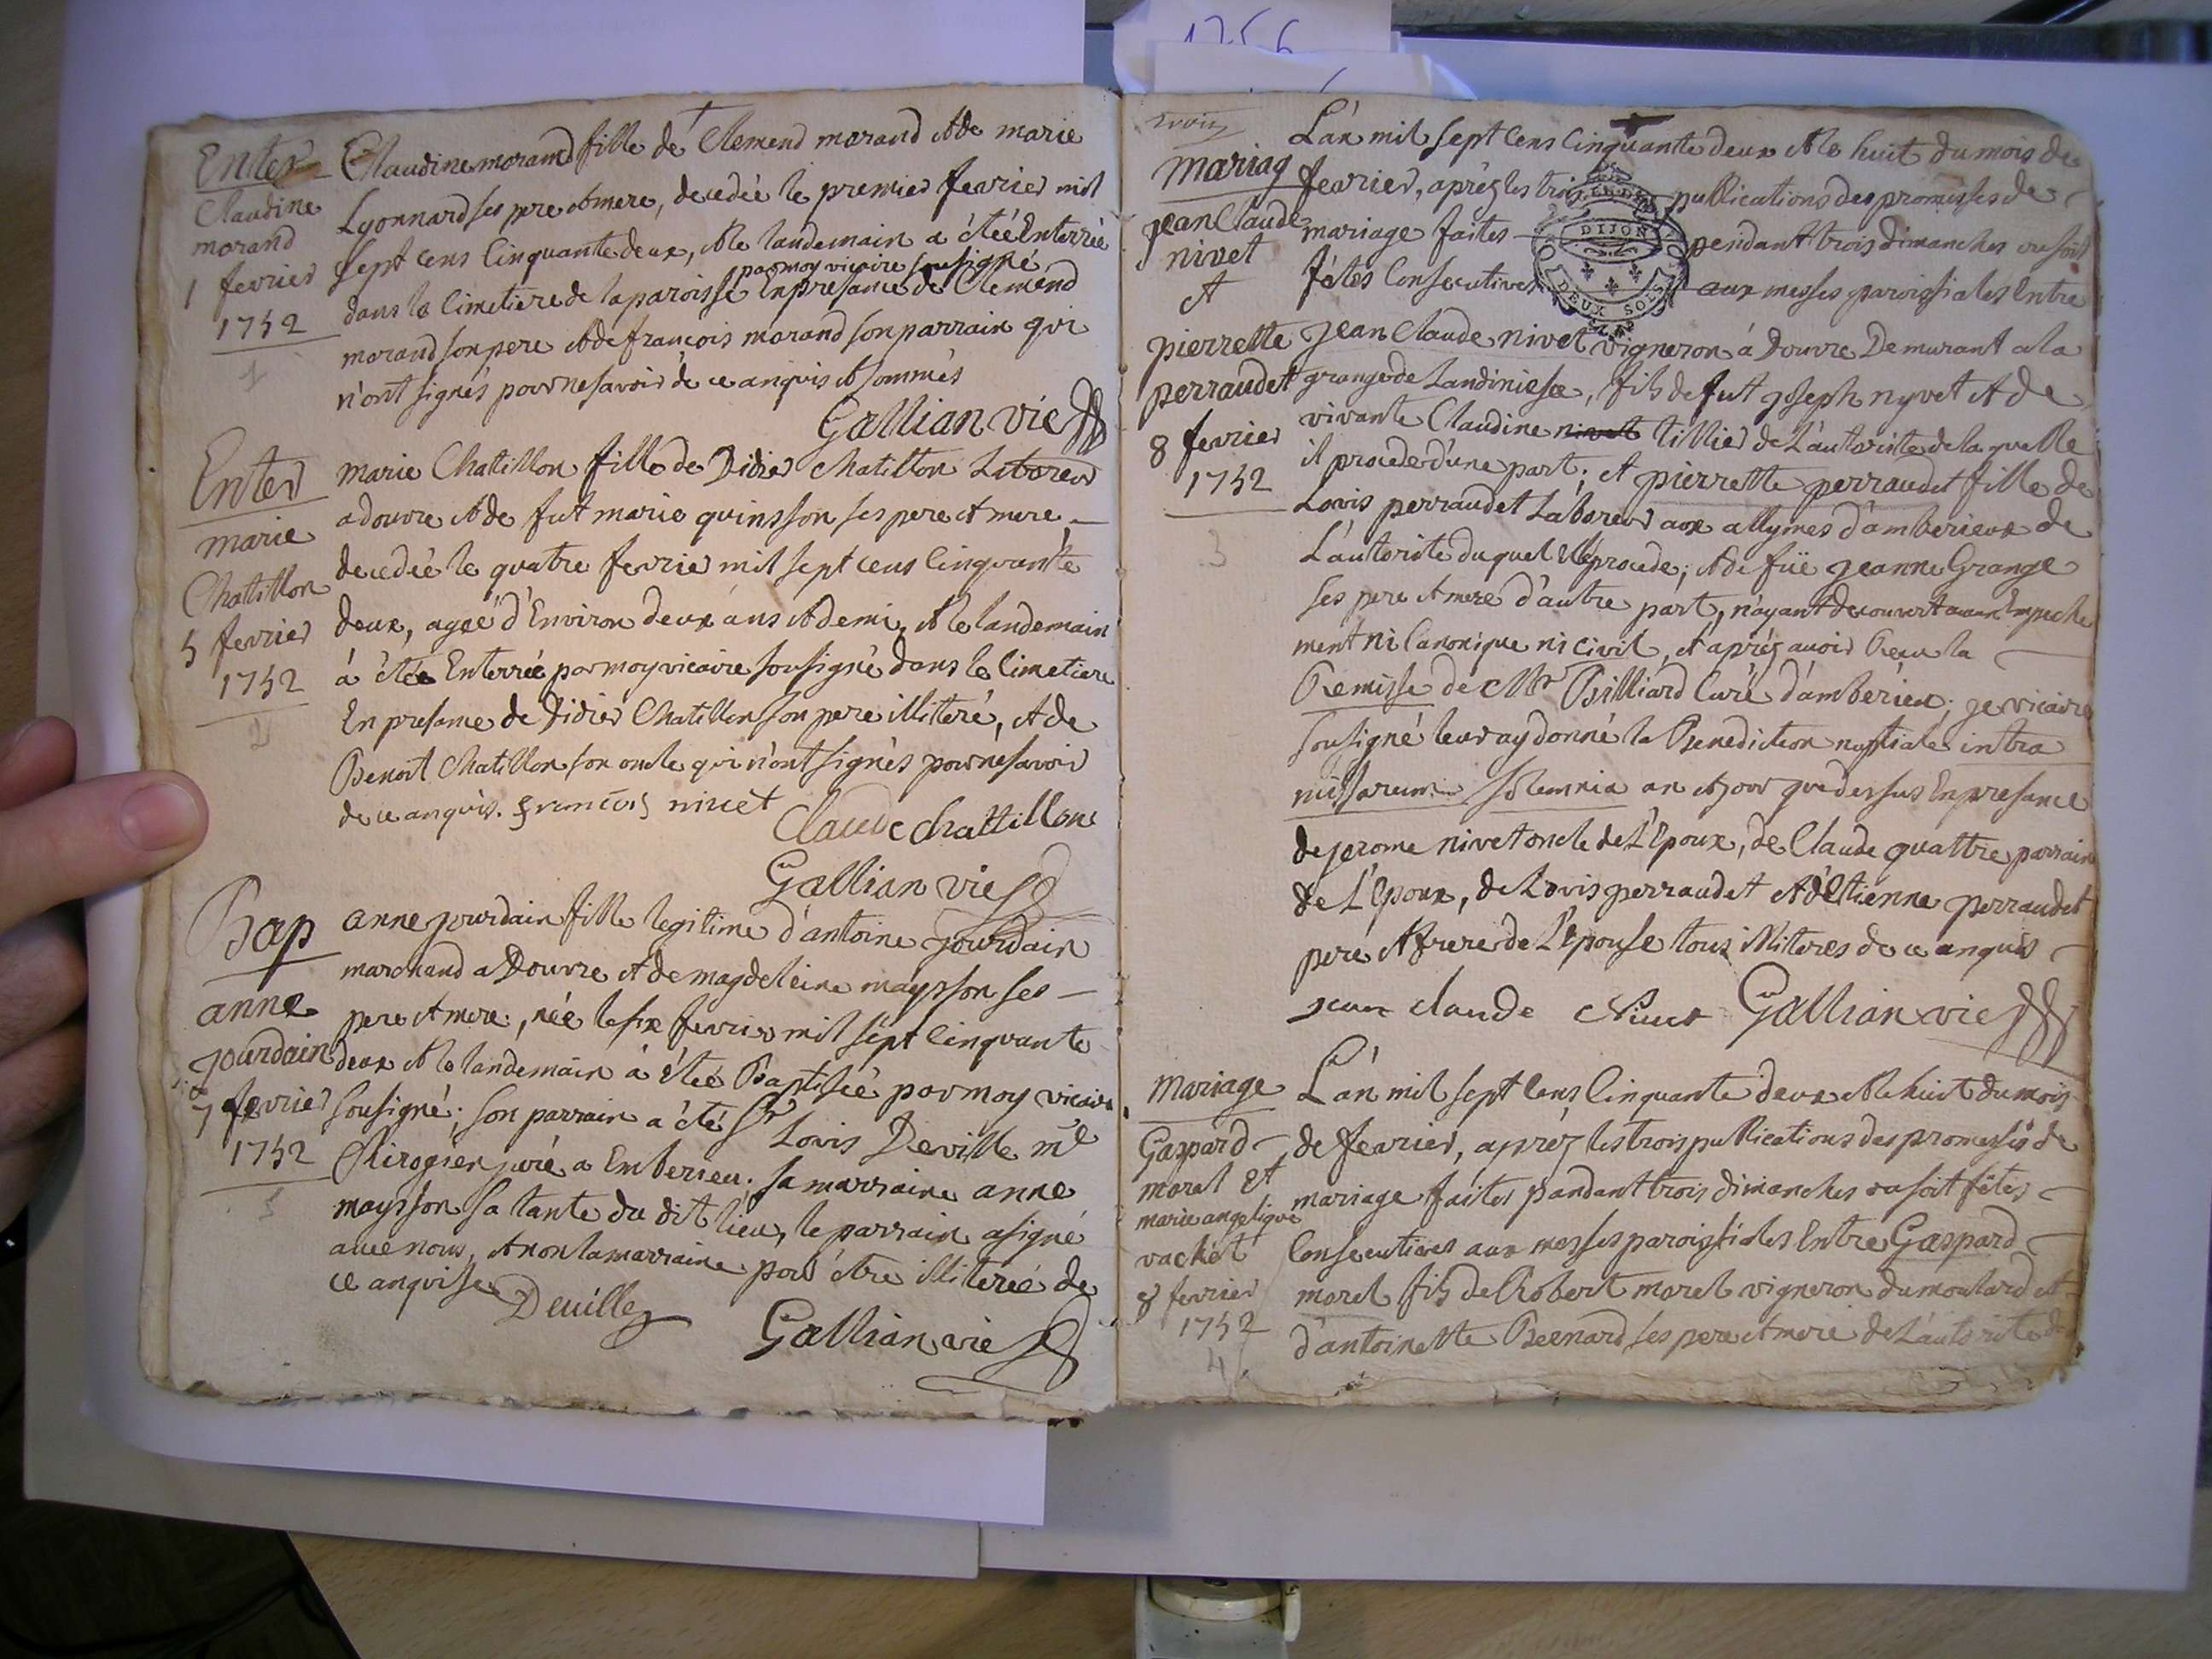 1756
Enter
Claudine
morand
1 fevrier
1752
1
Claudine morand fille de Clemend morand & de marie
Lyonnard ses pere & mere, decedée le premier fevrier mil
sept cens cinquante deux, & le landemain a étéé Enterrée
par moy vicaire sousigné
dans le cimetiere de la paroisse En presance de Clemend
morand son pere & de francois morand son parrain qui
n'ont signés pour ne savoir de ce anquis & sommés
Gallian vic
Enter
marie
Chatillon
5 fevrier
1752
2
marie Chatillon fille de Didier Chatillon Laboreur
a douvre & de fut marie quinsson ses pere & mere
decedée le quatre fevrier mil sept cens cinquante
deux, agée d'Environ deux ans & demi, & le landemain
à étée Enterrée par moy vicaire sousigné dans le cimetiere
En presance de Didier Chatillon son pere illiteré, & de
Benoit Chatillon son oncle qui n'ont signés pour ne savoir
de ce anquis. françois nivet
Claude chattillon
Gallian vic
Bap
anne
jourdain
7 fevrier
1752
anne jourdain fille legitime d'antoine jourdain
marchand a Douvre & de magdeleine maysson ses
pere & mere, née le six fevrier mil sept cinquante
deux & le landemain à étéé Baptisée par moy vicaire
sousigné; son parrain a été Sr Louis Deville me
Chirogien juré a Emberieu. sa marraine anne
maysson sa tante du dit lieu, le parrain a signé
avec nous, & non la marraine pour être illiterée de
ce anquise
Deville
Gallian vic
mariag
jean Claude
nivet
&
pierrette
perraudet
8 fevrier
1752
3
L'an mil sept cens cinquante deux & le huit du mois de
fevrier, apréz les trois publications des promesses de
mariage faites pendant trois dimanches ou soit
fétes Consecutives aux messes paroissiales Entre
DIJON
DEUX SOLS
jean Claude nivet vigneron à Douvre Demurant a la
grange de Landiniese, fils de fut joseph nyvet & de
vivante Claudine nivet tillier de L'autorité de la quelle
il procede d'une part; & pierrette perraudet fille de
Louis perraudet Laboreur aux allymes d'amberieux de
L'autorité du quel elle procede; & de füe jeanne Grange
ses pere & mere d'autre part, n'ayant decouvert aucun Empeche
ment ni Canonique ni civil, & apréz avoir Receu la
Remisse de Mr Billiard Curé d'amberieu; je vicaire
sousigné leur ay donné la Benediction nuptiale intra
missarum solemnia an & jour que dessus En presance
de jerome nivet oncle de L'Epoux, de Claude quattre parrain
de L'Epoux, de Louis perraudet & d'Etienne perraudet
pere & frere de L'Epouse tous illiteres de ce anquis
jean claude Nivet
Gallian vic
mariage
Gaspard
morel Et
marie angelique
vachet
8 fevrier
1752
4
L'an mil sept cens cinquante deux & le huit du mois
de fevrier, apréz les trois publications des promesses de
mariage faites pandant trois dimanches ou soit fétes
Consecutives aux messes paroissiales Entre Gaspard
morel fils de Robert morel vigneron du moulard et
d'antoinette Bernard ses pere & mere de L'autorité de